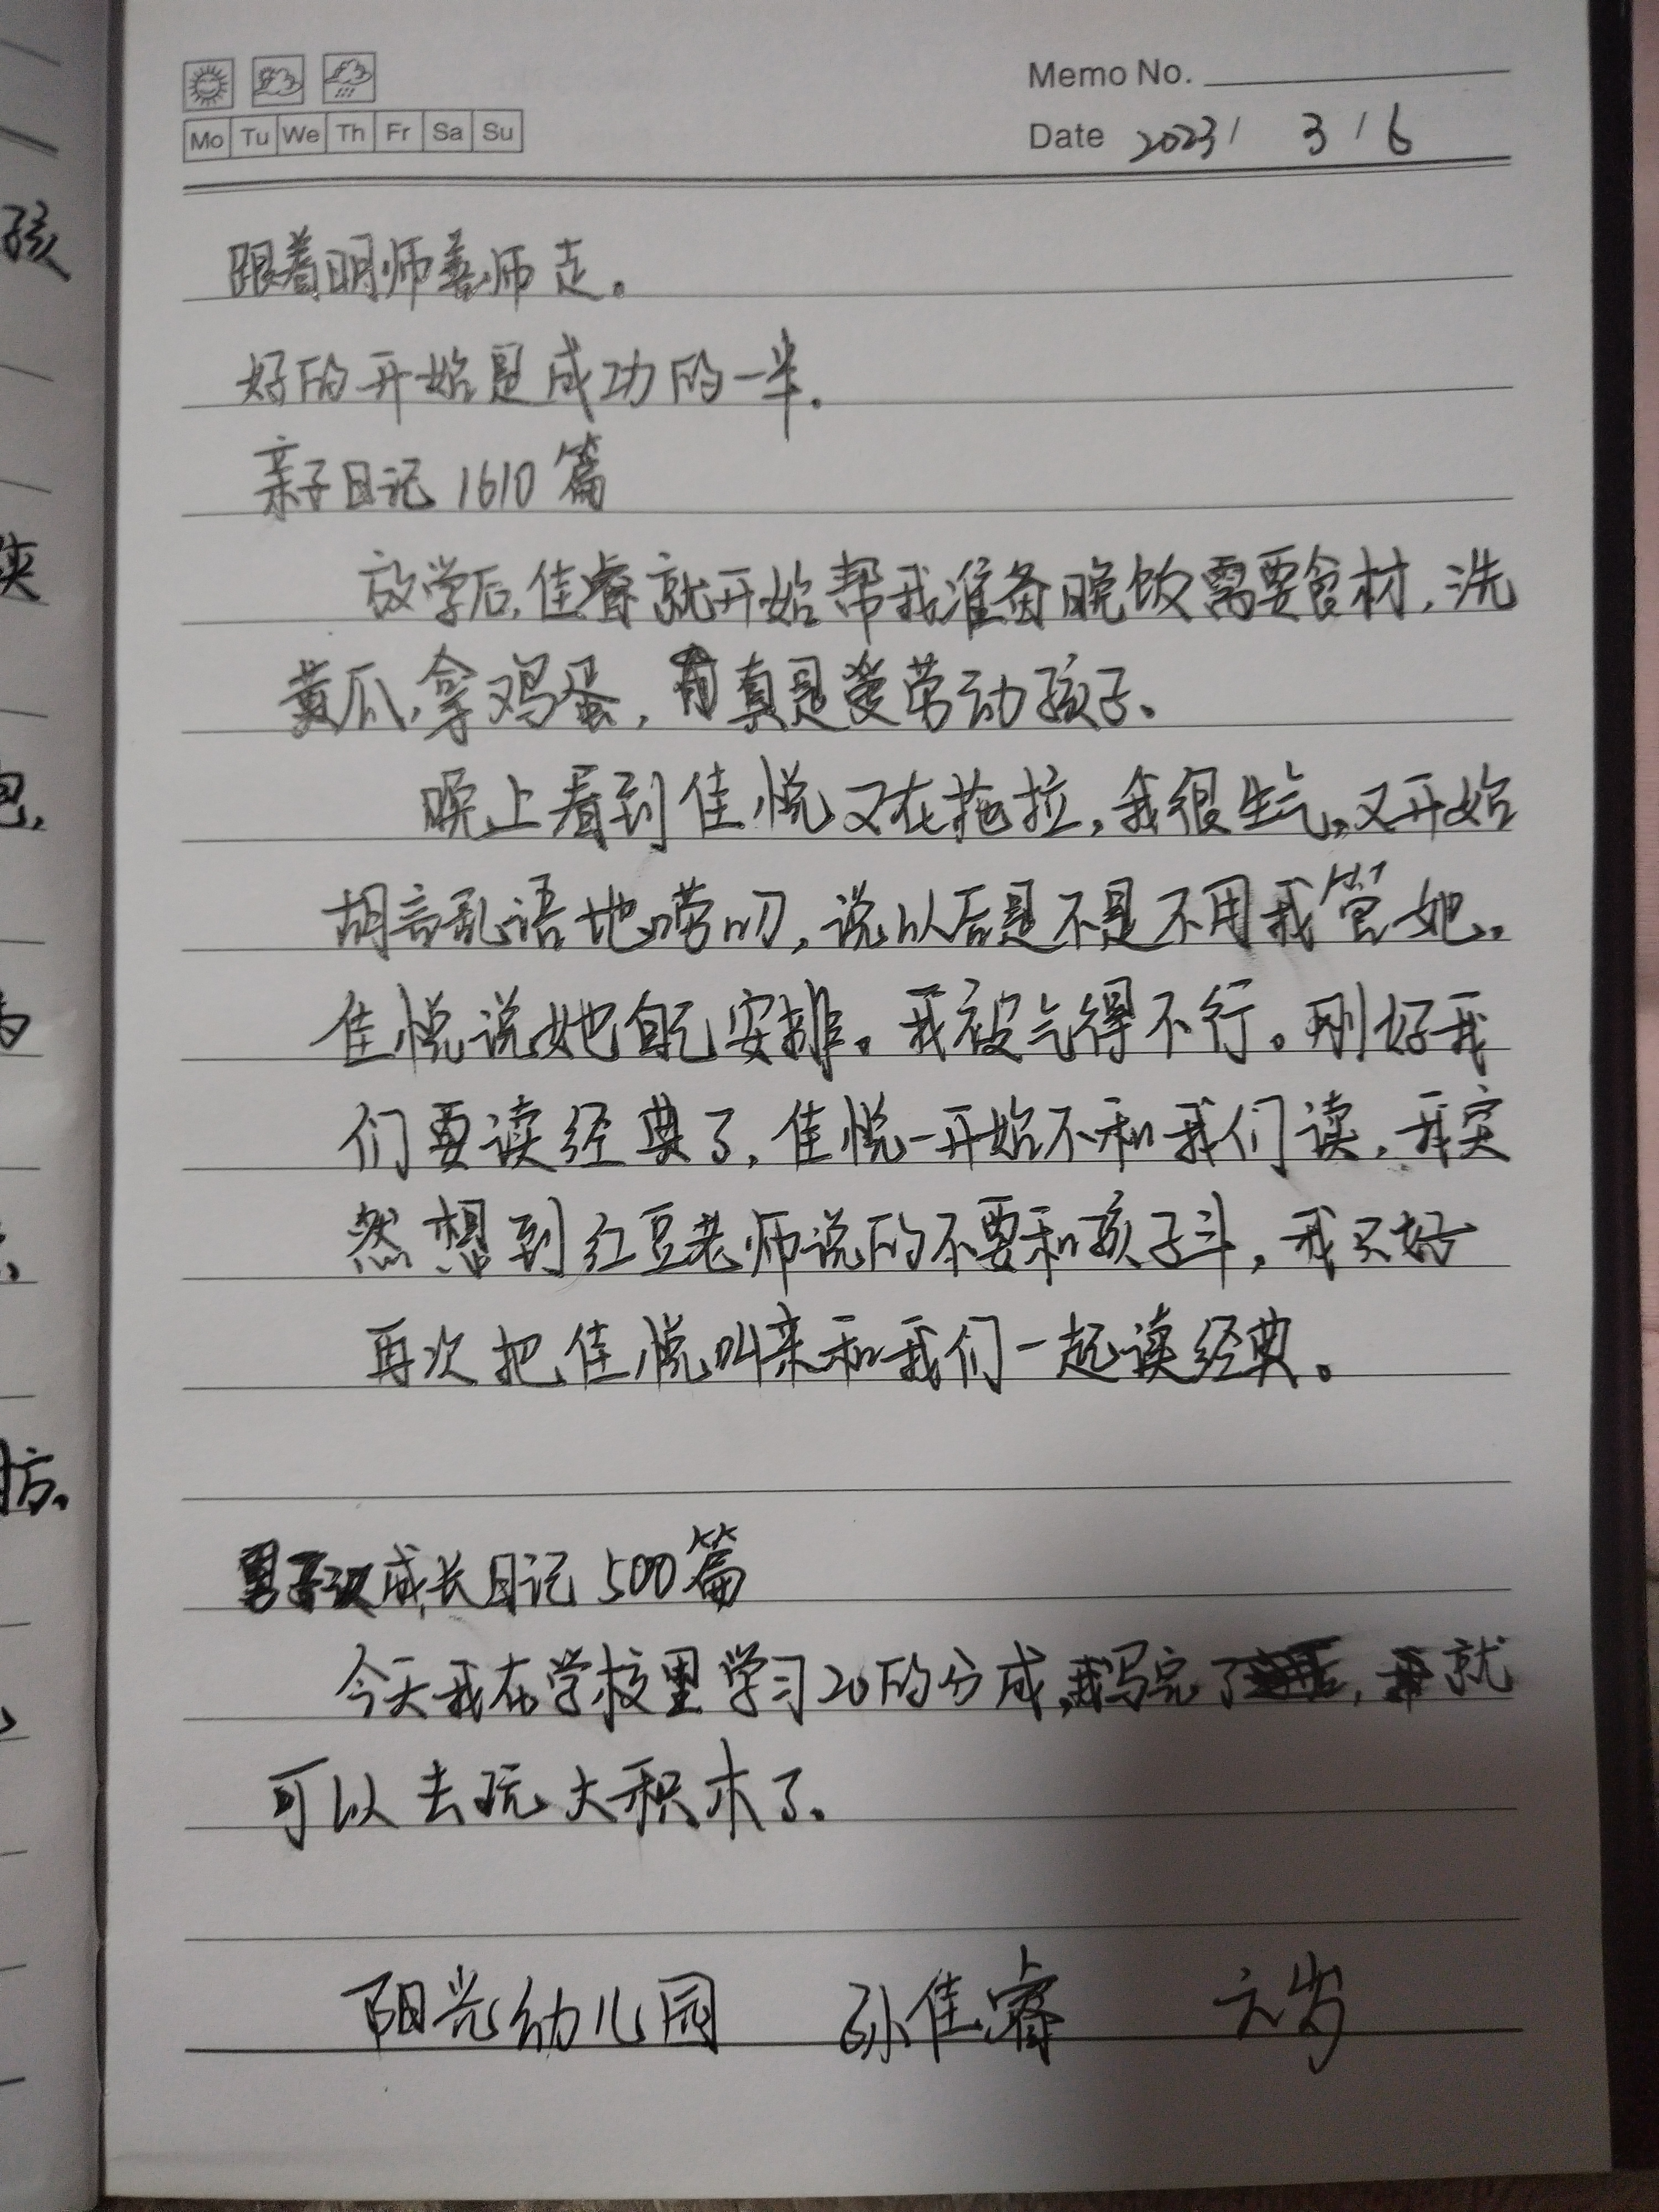 Memo No.
Mo Tu We Th Fr Sa Su
Date 2023 / 3 / 6
跟着明师善师走。
好的开始是成功的一半.
亲子日记 1610 篇
放学后,佳睿就开始帮我准备晚饭需要食材,洗
黄瓜,拿鸡蛋,真是爱劳动孩子。
晚上看到佳悦又在拖拉,我很生气,又开始
胡言乱语地唠叨,说以后是不是不用我管她。
佳悦说她自己安排。我被气得不行。刚好我
们要读经典了,佳悦一开始不和我们读,我突
然想到红豆老师说的不要和孩子斗,我只好
再次把佳悦叫来和我们一起读经典。
成长日记 500 篇
今天我在学校里学习20的分成,我写完了,就
可以去玩大积木了.
阳光幼儿园 孙佳睿 六岁
孩